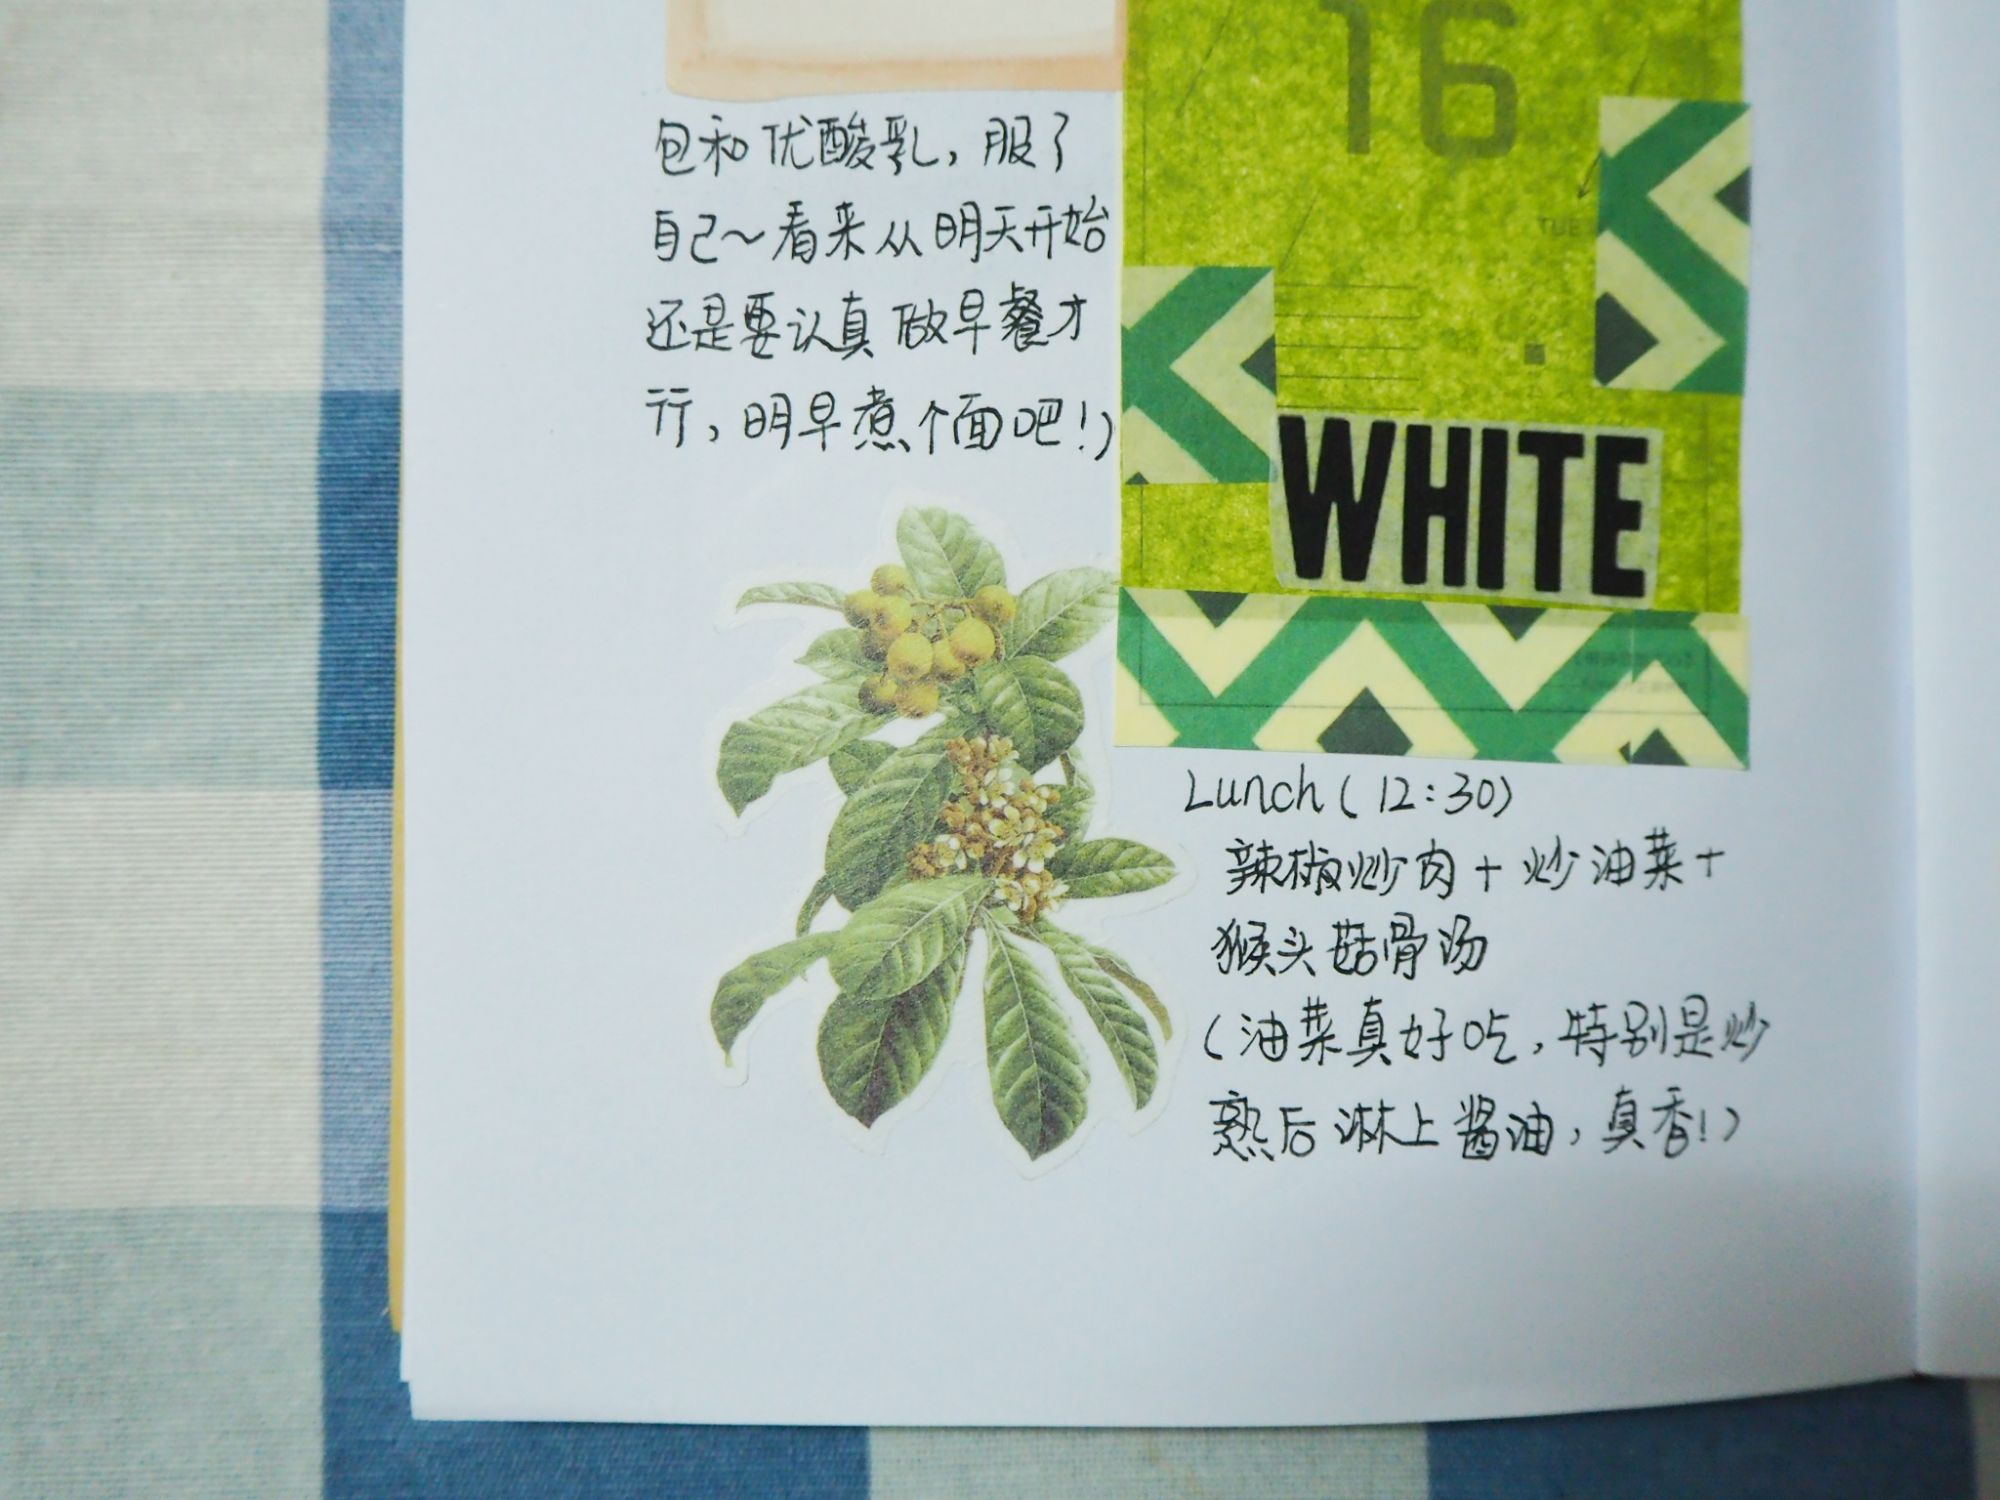 包和优酸乳，服了
自己～看来从明天开始
还是要认真做早餐才
行，明早煮个面吧！）
16
TUE
WHITE
Lunch（12:30）
辣椒炒肉+炒油菜+
猴头菇骨汤
（油菜真好吃，特别是炒
熟后淋上酱油，真香！）